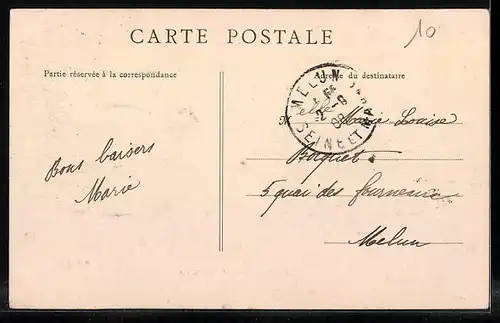 10
CARTE POSTALE
Partie réservée à la correspondance
Adresse du destinataire
MELUN
2 - 8
SEINE ET M
M elle Marie Louise
Boquet
5 quai des fourneaux
Melun
Bons baisers
Marie